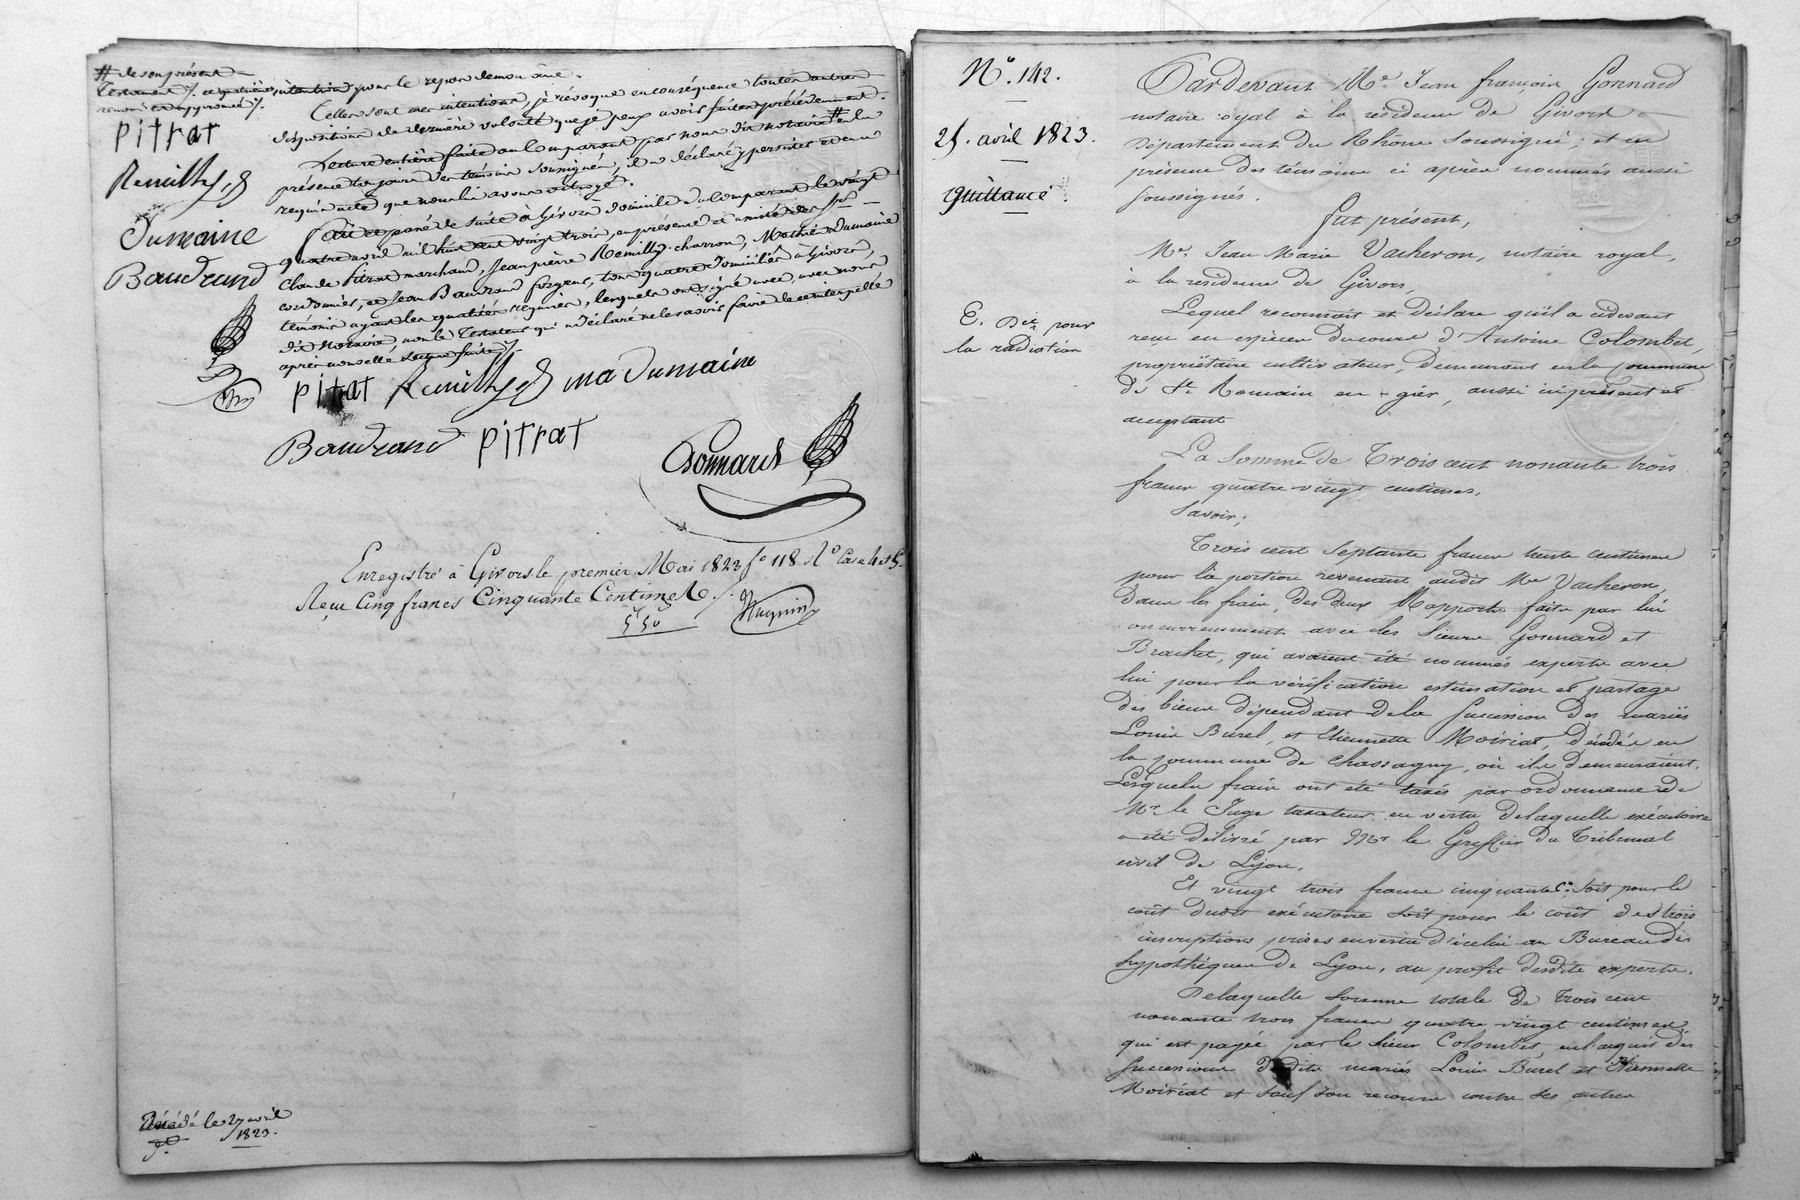 # de son présent
testament /.
renvoi approuvé /.
Pitrat
Remilly
Dumaine
Baudrand
intention pour le repos de mon âme.
Celles sont mes intentions, je révoque en conséquence toutes autres
dispositions de dernière volonté que je peux avoir faites précédemment.
Lecture entière faite au comparant par nous dit notaire # en la
présence toujours des témoins soussignés, il a déclaré y persister et en a
requis acte que nous lui avons octroyé.
Fait et passé de suite à Givors domicile du comparant le vingt
quatre avril mil huit cent vingt trois, en présence et assisté des Srs
Claude Pitrat marchand, Jean pierre Remilly charron, Mathieu Dumaine
cordonnier, et Jean Baudrand forgeur, tous quatre domiciliés à Givors,
témoins ayant les qualités requises, lesquels ont signé avec nous
dit notaire, non le Testateur qui a déclaré ne le savoir faire de ce interpellé
après nouvelle lecture faite /.
Pitrat Remilly ma Dumaine
Baudrand Pitrat
Gonnard
Enregistré à Givors le premier Mai 1823 fo 118 Ro Case 4 et 5.
Reçu Cinq francs Cinquante Centimes /.
5f 50
Décédé le 27 avril
1823.
No. 142.
25. avril 1823.
Quittance.
E. Bce pour
la radiation
Pardevant Me Jean françois Gonnard
notaire royal à la résidence de Givors
département du Rhône soussigné; et en
présence des témoins ci après nommés aussi
soussignés.
Fut présent,
Me. Jean Marie Vacheron, notaire royal,
à la résidence de Givors,
Lequel reconnait et déclare qu'il a cidevant
reçu en espèces du cours d'Antoine Colombet,
propriétaire cultivateur, demeurant en la commune
de St. Romain en gier, aussi ici présent et
acceptant
La Somme de Trois cent nonante trois
francs quatre-vingt centimes,
Savoir;
Trois cent Septante francs trente centimes
pour la portion revenant audit Me Vacheron,
dans les frais, des deux Rapports faits par lui
concurremment avec les Sieurs Gonnard et
Brachet, qui avaient été nommés experts avec
lui pour la vérification estimation et partage
des biens dépendant de la Succession des mariés
Louis Burel, et Etiennette Moiriat, décédés en
la commune de Chassagny, où ils demeuraient,
Lesquels frais ont été taxés par ordonnance de
Mr. le Juge taxateur en vertu de laquelle exécutoire
a été délivré par Mr le Greffier du Tribunal
civil de Lyon,
Et vingt trois francs cinquante Cs. Soit pour le
coût dudit exécutoire soit pour le coût des trois
inscriptions prises en vertu d'icelui au Bureau des
hypothèques de Lyon, au profit desdits experts.
De laquelle Somme totale de Trois cent
nonante trois francs quatre-vingt centimes
qui est payée par le Sieur Colombet, en l'acquit des
successions desdits mariés Louis Burel et Etiennette
Moiriat et sauf son recours contre les autres